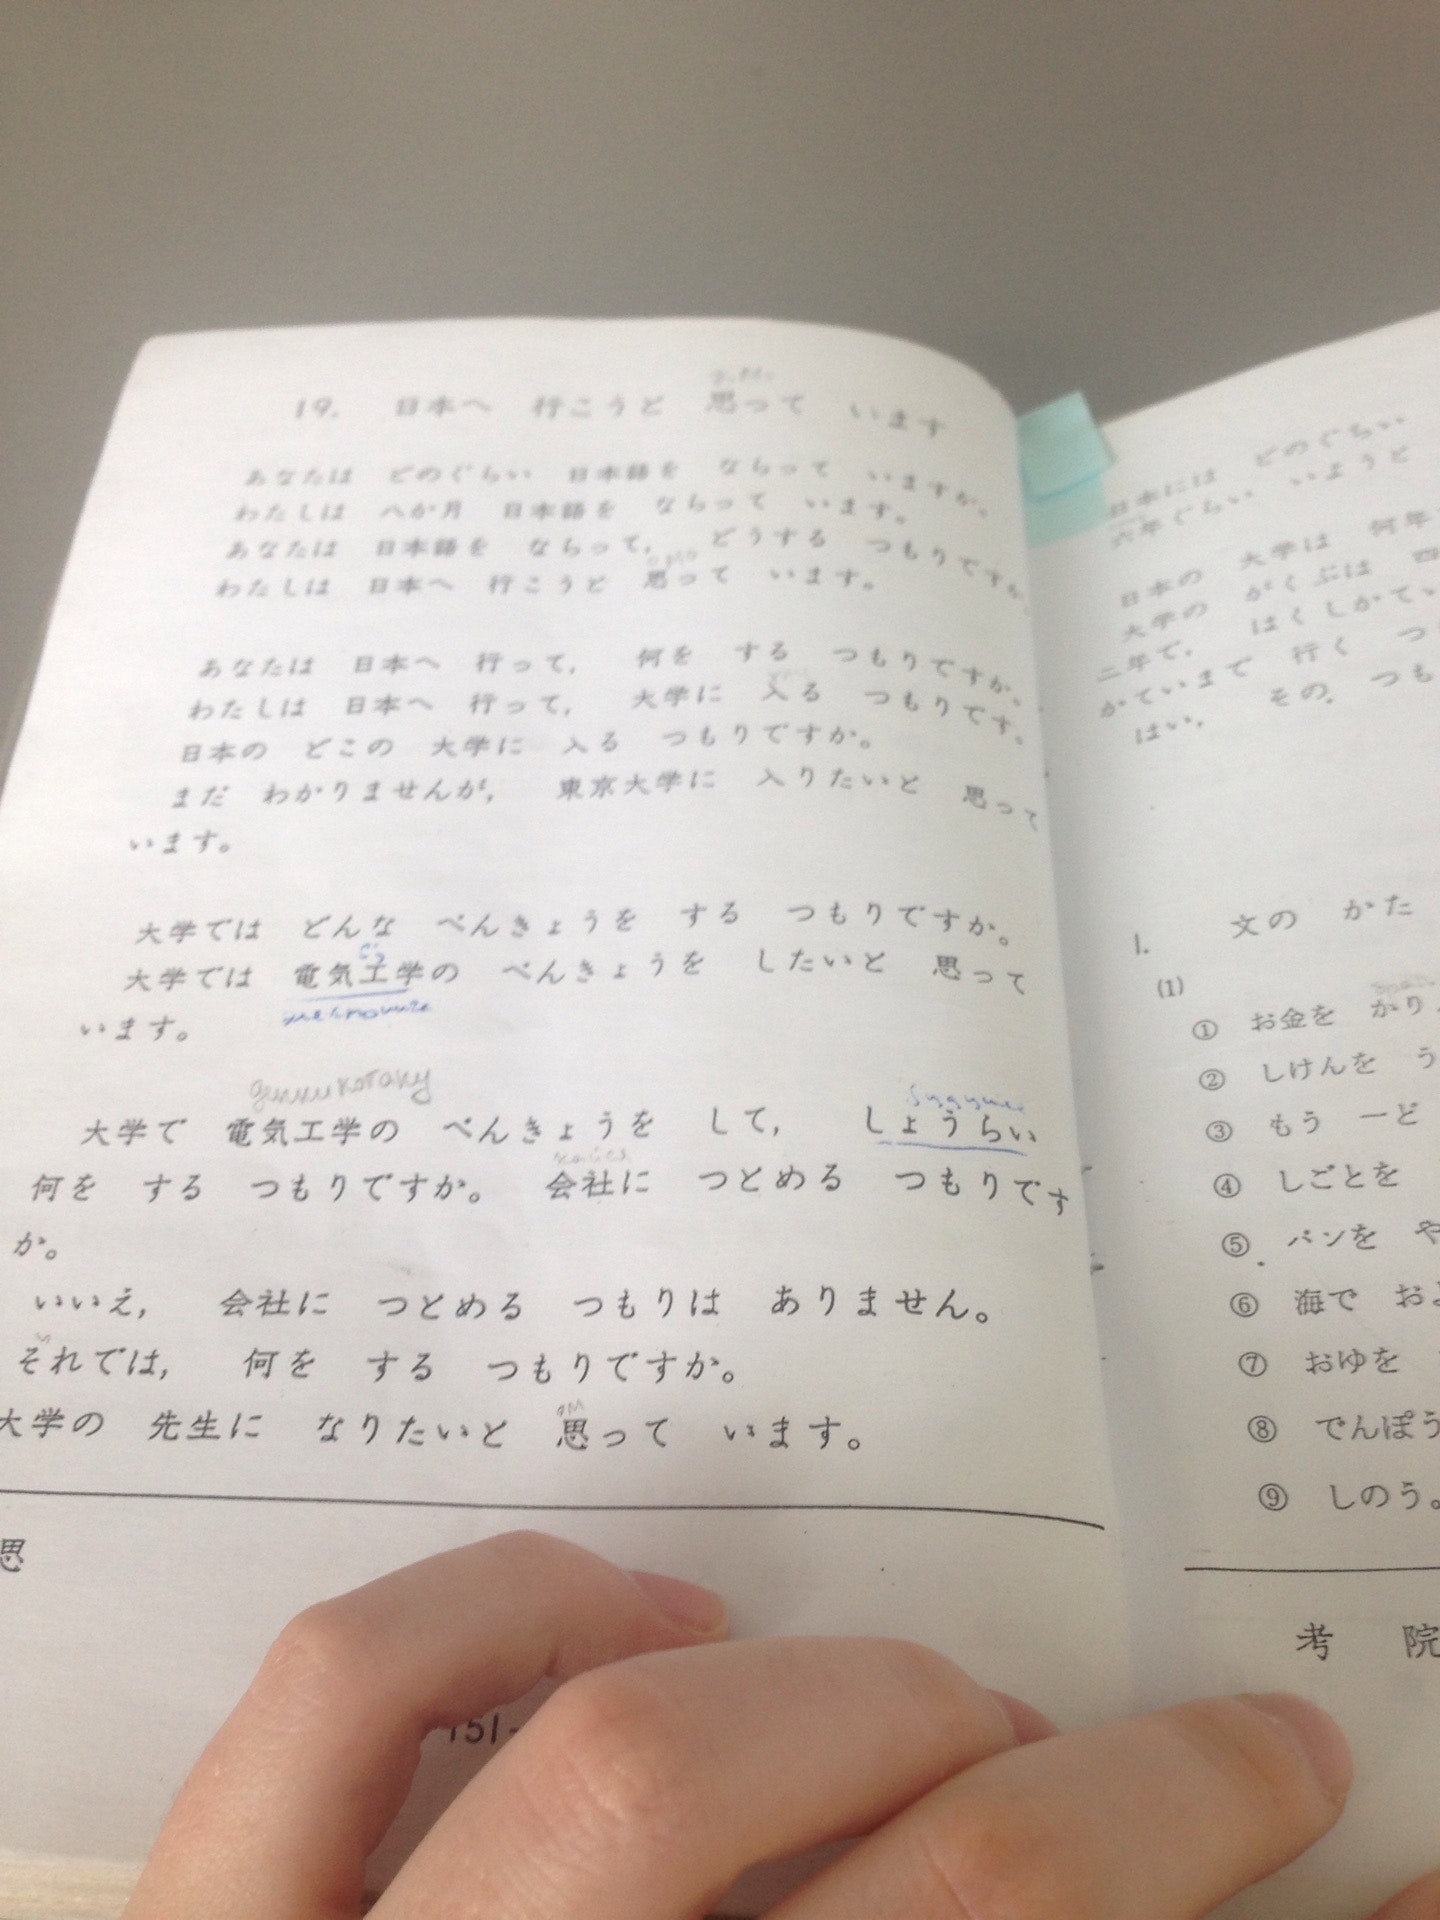 19. 日本へ 行こうと 思って います
あなたは どのぐらい 日本語を ならって いますか。
わたしは 八か月 日本語を ならって います。
あなたは 日本語を ならって, どうする つもりですか。
わたしは 日本へ 行こうと 思って います。
あなたは 日本へ 行って, 何を する つもりですか。
わたしは 日本へ 行って, 大学に 入る つもりです。
日本の どこの 大学に 入る つもりですか。
まだ わかりませんが, 東京大学に 入りたいと 思って
います。
大学では どんな べんきょうを する つもりですか。
大学では 電気工学の べんきょうを したいと 思って
います。
大学で 電気工学の べんきょうを して, しょうらい
何を する つもりですか。 会社に つとめる つもりです
か。
いいえ, 会社に つとめる つもりは ありません。
それでは, 何を する つもりですか。
大学の 先生に なりたいと 思って います。
思
151-
日本には どのぐらい
六年ぐらい いようと
日本の 大学は 何年
大学の がくぶは 四
二年で, はくしかてい
かていまで 行く つ
はい, その, つも
1. 文の かた
(1)
① お金を かり
② しけんを う
③ もう 一ど
④ しごとを
⑤ パンを や
⑥ 海で およ
⑦ おゆを
⑧ でんぽう
⑨ しのう。
考 院